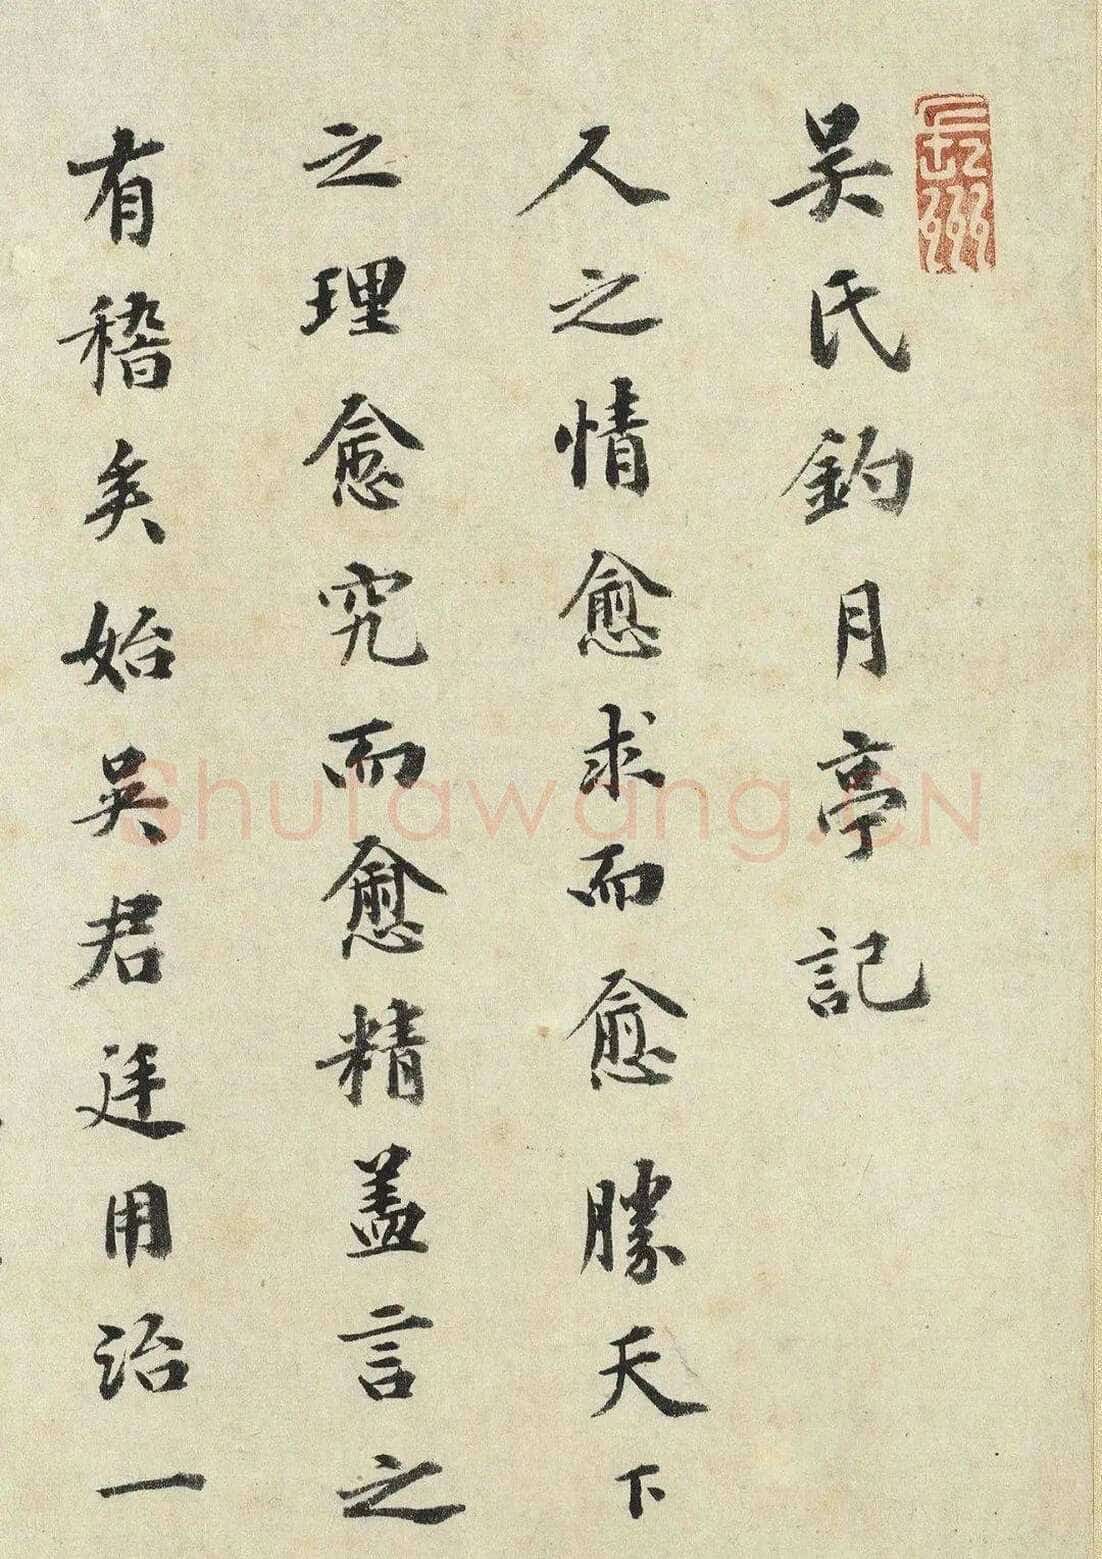 長洲
吴氏釣月亭記
人之情愈求而愈勝天下
之理愈究而愈精蓋言之
有稽矣始吴君廷用治一
Shufawang.CN